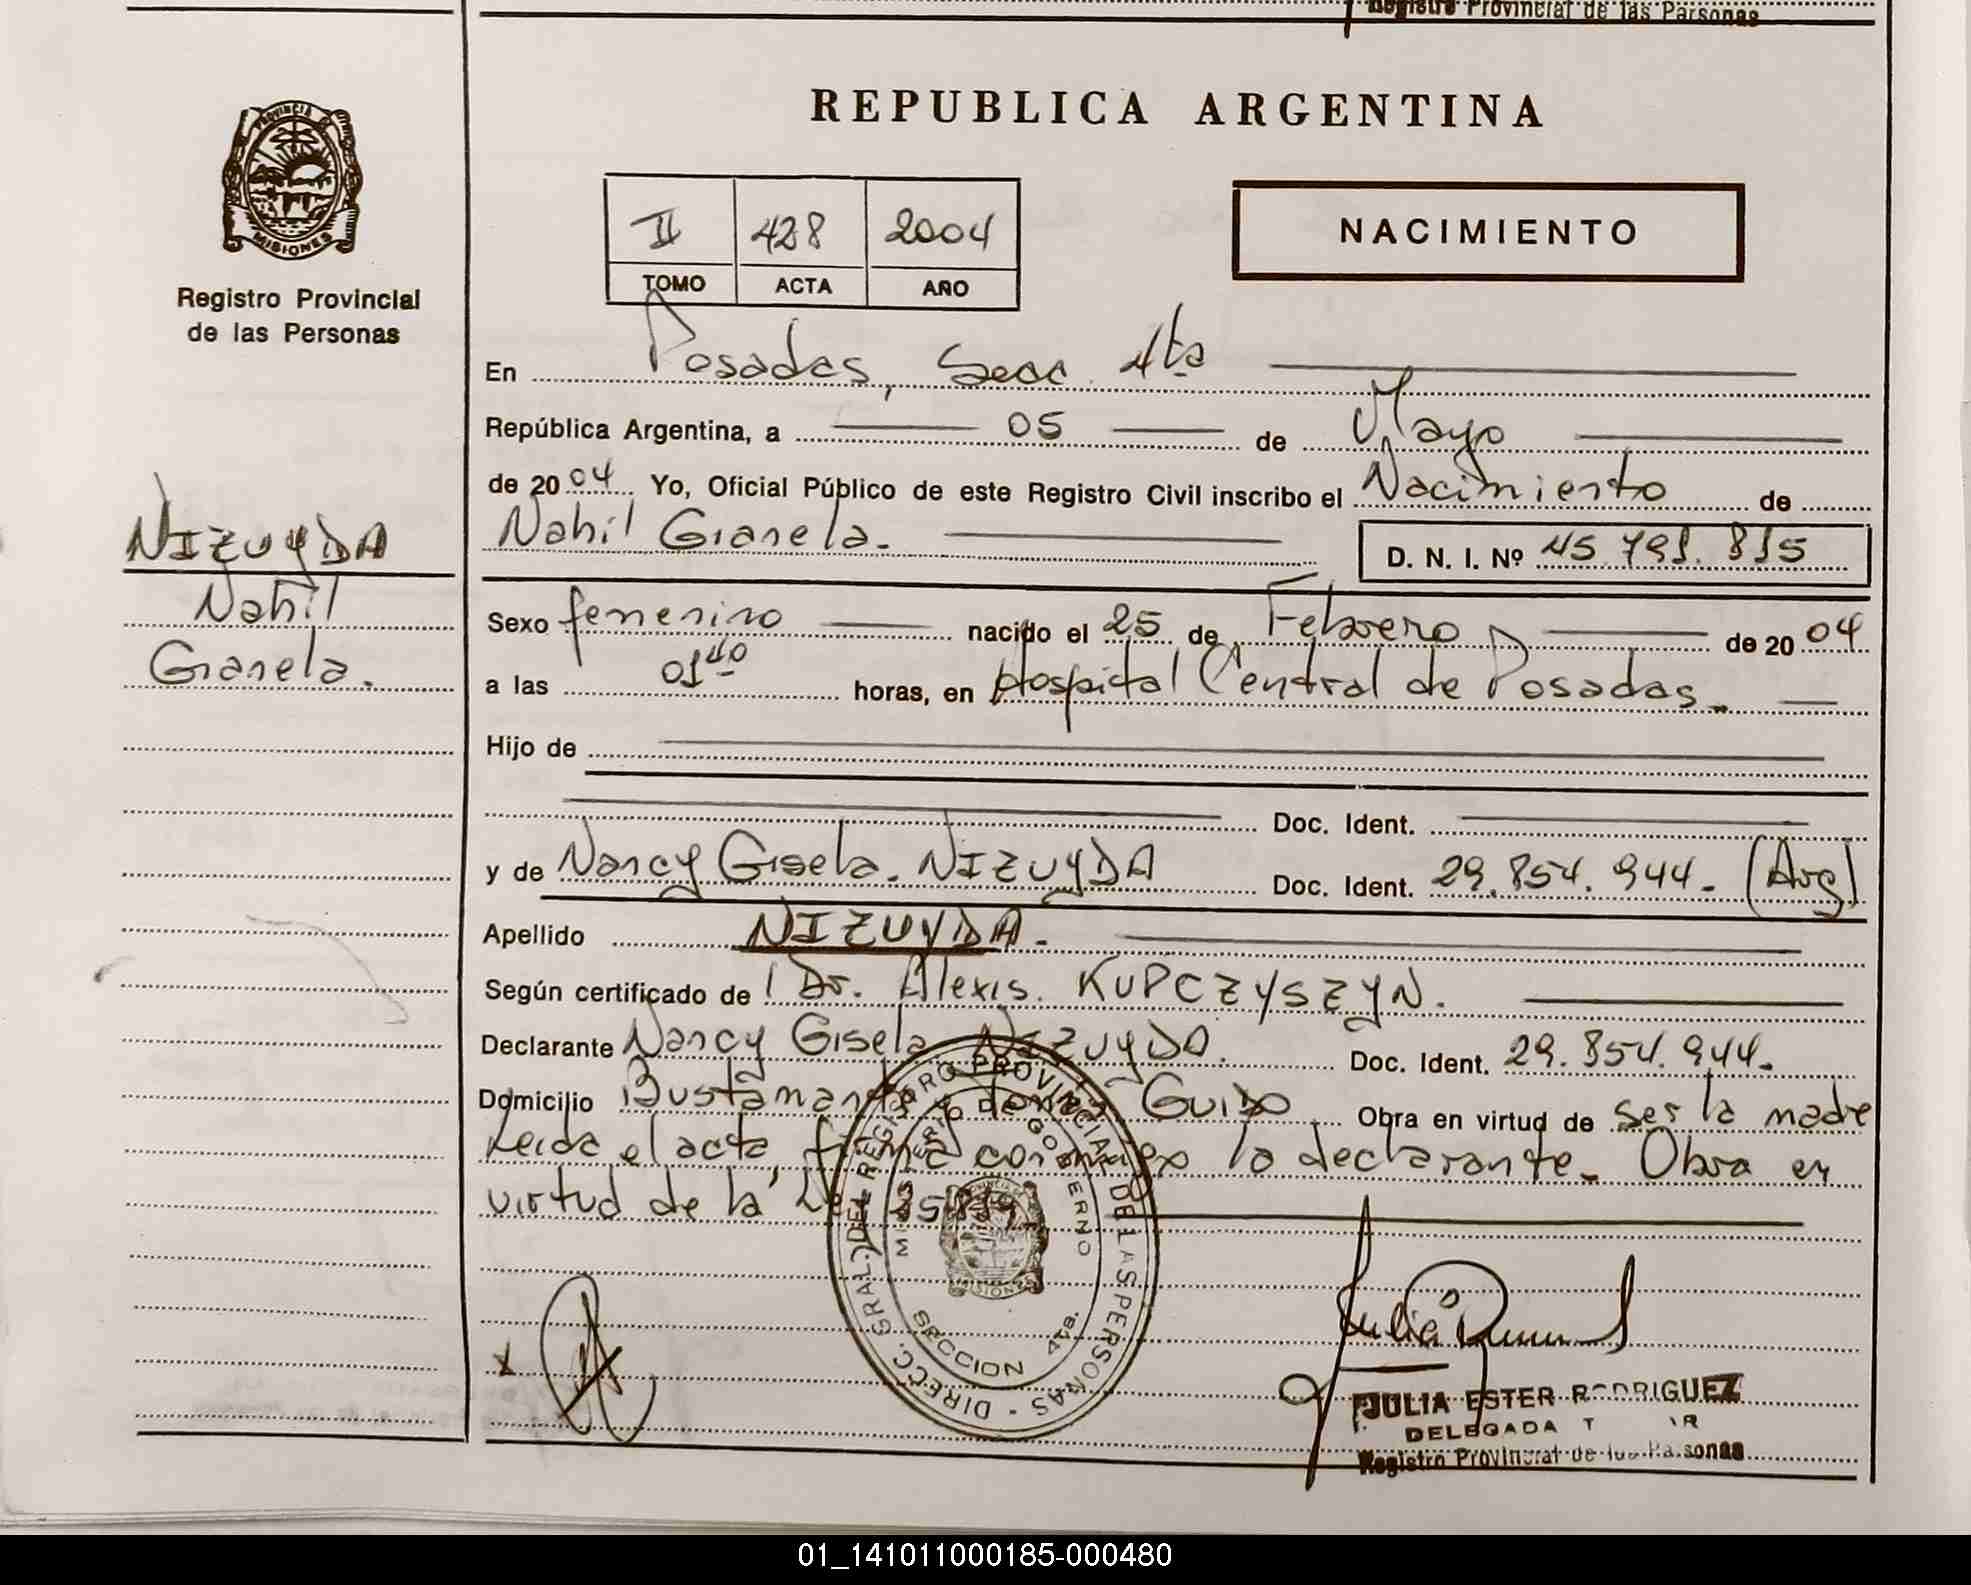 Registro Provincial de las Personas
REPUBLICA ARGENTINA
PROVINCIA DE
MISIONES
Registro Provincial
de las Personas
II 428 2004
TOMO ACTA AÑO
NACIMIENTO
En Posadas, Secc. 4ta
República Argentina, a 05 de Mayo
de 2004 Yo, Oficial Público de este Registro Civil inscribo el Nacimiento de
Nahil Gianela.
D. N. I. Nº 45.791.815
NIZUYDA
Nahil
Gianela.
Sexo femenino nacido el 25 de Febrero de 2004
a las 01 40 horas, en Hospital Central de Posadas.
Hijo de
Doc. Ident.
y de Nancy Gisela. NIZUYDA Doc. Ident. 29.854.944.- (Arg)
Apellido NIZUYDA.
Según certificado de Dr. Alexis. KUPCZYSZYN.
Declarante Nancy Gisela NIZUYDA. Doc. Ident. 29.854.944.-
Domicilio Bustamante Guido Obra en virtud de ser la madre
Leida el acta, firma conmigo la declarante.- Obra en
virtud de la
DIRECC. GRAL. DEL REGISTRO PROVINCIAL DE LAS PERSONAS -
MINISTERIO DE GOBIERNO
SECCION 4ta.
x
JULIA ESTER RODRIGUEZ
DELEGADA
Registro Provincial de las Personas
01_141011000185-000480